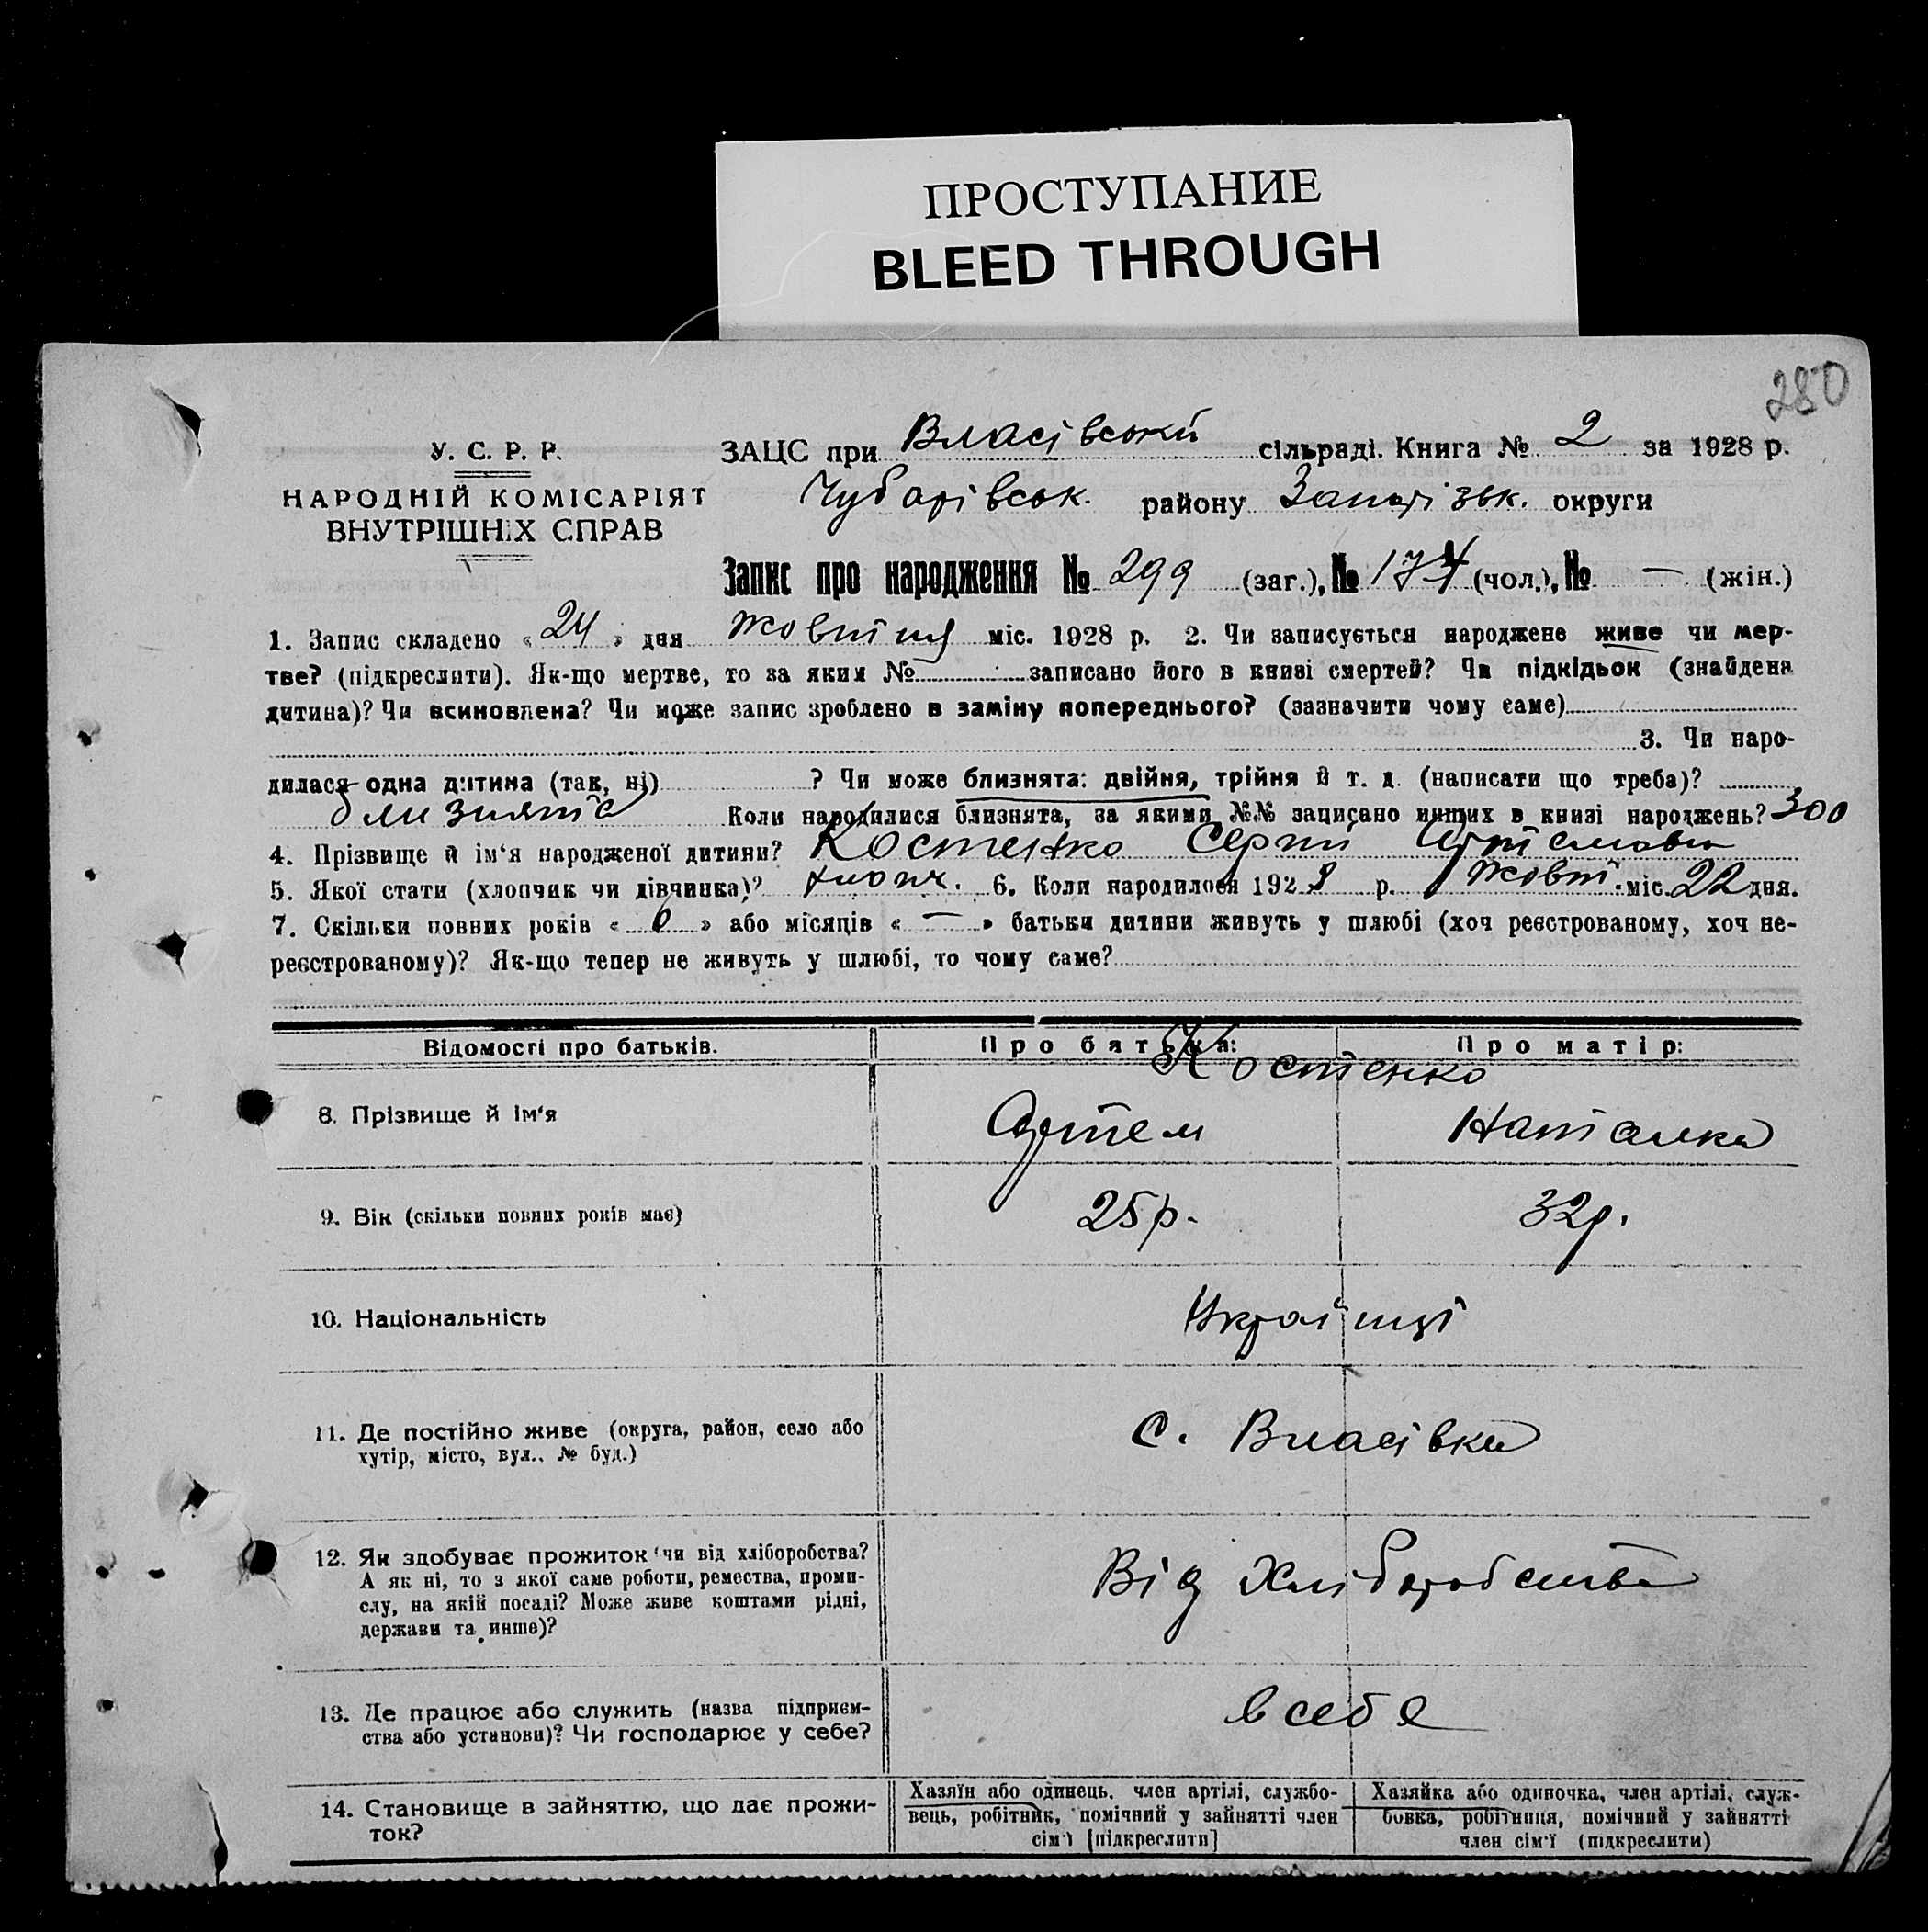 ПРОСТУПАНИЕ
BLEED THROUGH
280
У. С. Р. Р.
НАРОДНІЙ КОМІСАРІЯТ
ВНУТРІШНІХ СПРАВ
ЗАЦС при Власівській сільраді. Книга № 2 за 1928 р.
Чубарівськ. району Запорізьк. округи
Запис про народження № 299 (заг.), № 174 (чол.), № — (жін.)
1. Запис складено « 24 » дня жовтня міс. 1928 р. 2. Чи записується народжене живе чи мер-
тве? (підкреслити). Як-що мертве, то за яким № записано його в книзі смертей? Чи підкідьок (знайдена
дитина)? Чи всиновлена? Чи може запис зроблено в заміну попереднього? (зазначити чому саме)
3. Чи наро-
дилася одна дитина (так, ні) ? Чи може близнята: двійня, трійня й т. д. (написати що треба)?
близнята Коли народилися близнята, за якими №№ записано инших в книзі народжень? 300
4. Прізвище й ім‘я народженої дитини? Костенко Сергій Артемович
5. Якої стати (хлопчик чи дівчинка)? хлопч. 6. Коли народилося 1928 р. жовт. міс. 22 дня.
7. Скільки повних років « 6 » або місяців « — » батьки дитини живуть у шлюбі (хоч реєстрованому, хоч не-
реєстрованому)? Як-що тепер не живуть у шлюбі, то чому саме?
Відомості про батьків. Про батька: Про матір:
Костенко
8. Прізвище й ім‘я Артем Наталка
9. Вік (скільки повних років має) 25р. 32р.
10. Національність Українці
11. Де постійно живе (округа, район, село або
хутір, місто, вул., № буд.) с. Власівка
12. Як здобуває прожиток чи від хліборобства?
А як ні, то з якої саме роботи, ремества, проми-
слу, на якій посаді? Може живе коштами рідні,
держави та инше)? Від Хліборобства
13. Де працює або служить (назва підприєм-
ства або установи)? Чи господарює у себе? в себе
14. Становище в зайняттю, що дає прожи-
ток?
Хазяїн або одинець, член артілі, службо-
вець, робітник, помічний у зайнятті член
сім‘ї [підкреслити]
Хазяйка або одиночка, член артілі, служ-
бовка, робітниця, помічний у зайнятті
член сім‘ї (підкреслити)